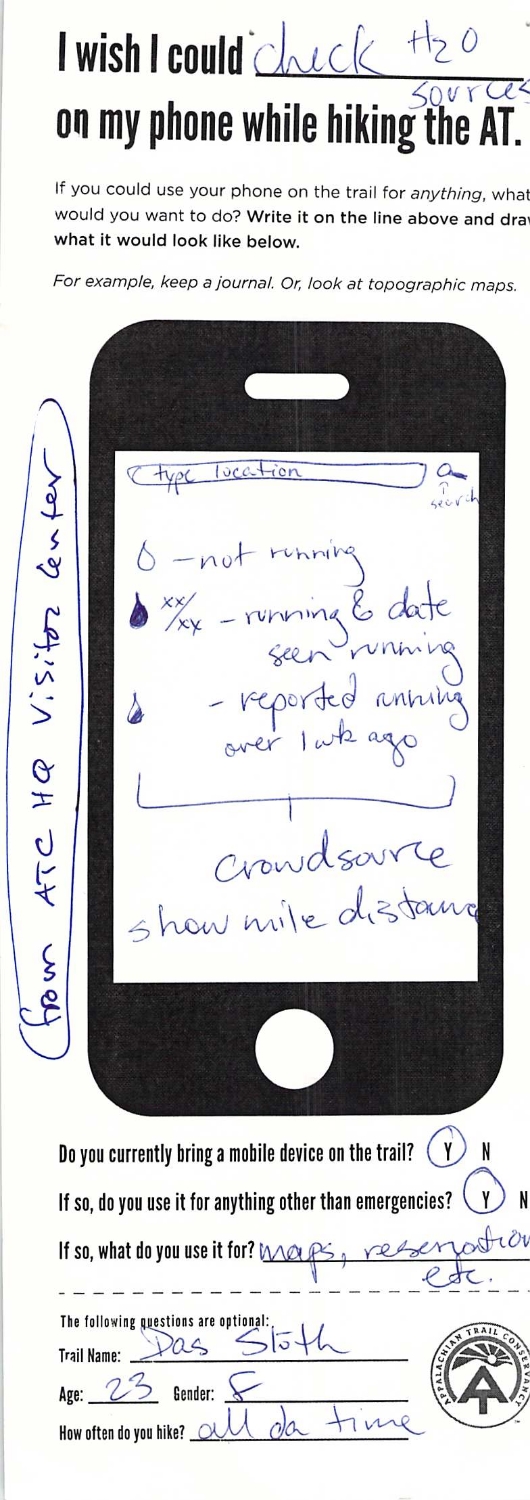 I wish I could check H2O
sources
on my phone while hiking the AT.
If you could use your phone on the trail for anything, what
would you want to do? Write it on the line above and draw
what it would look like below.
For example, keep a journal. Or, look at topographic maps.
from ATC HQ Visitor Center
type location
search
- not running
xx/xx - running & date
seen running
- reported running
over 1 wk ago
crowdsource
show mile distance
Do you currently bring a mobile device on the trail? Y N
If so, do you use it for anything other than emergencies? Y N
If so, what do you use it for? maps, reservation
etc.
The following questions are optional:
Trail Name: Das Sloth
Age: 23 Gender: F
How often do you hike? all da time
APPALACHIAN TRAIL CONSERVANCY